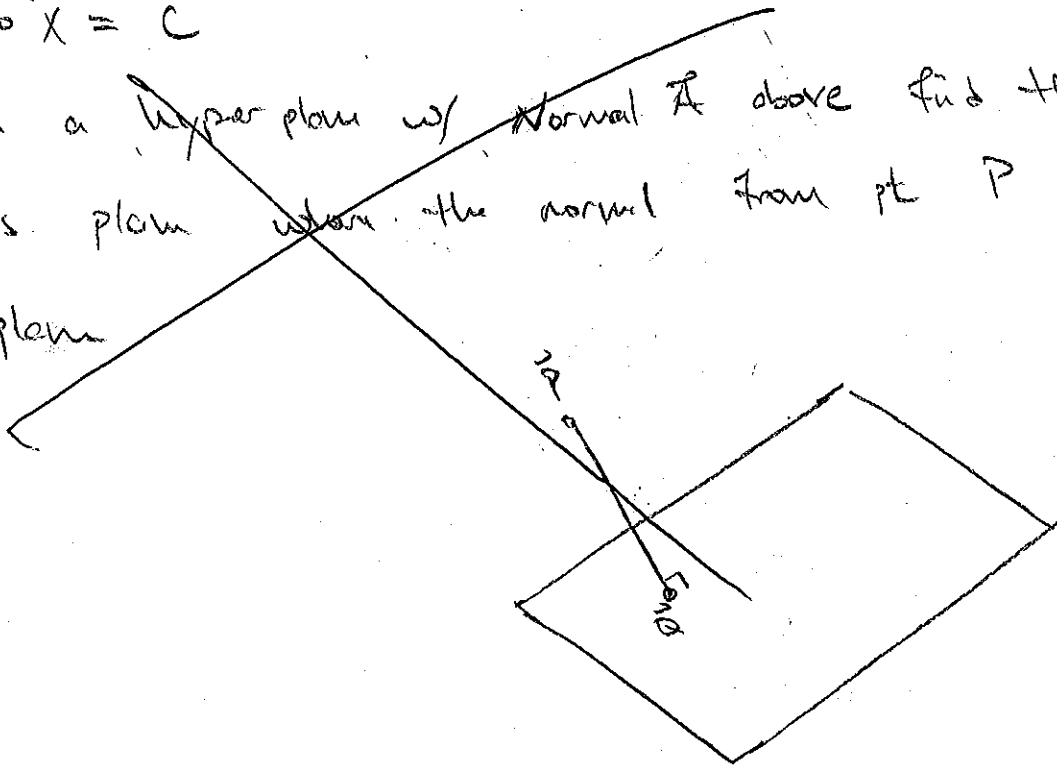 X = C
a hyperplane w/ Normal A above find
plane where the normal from pt P
plane
P
Q